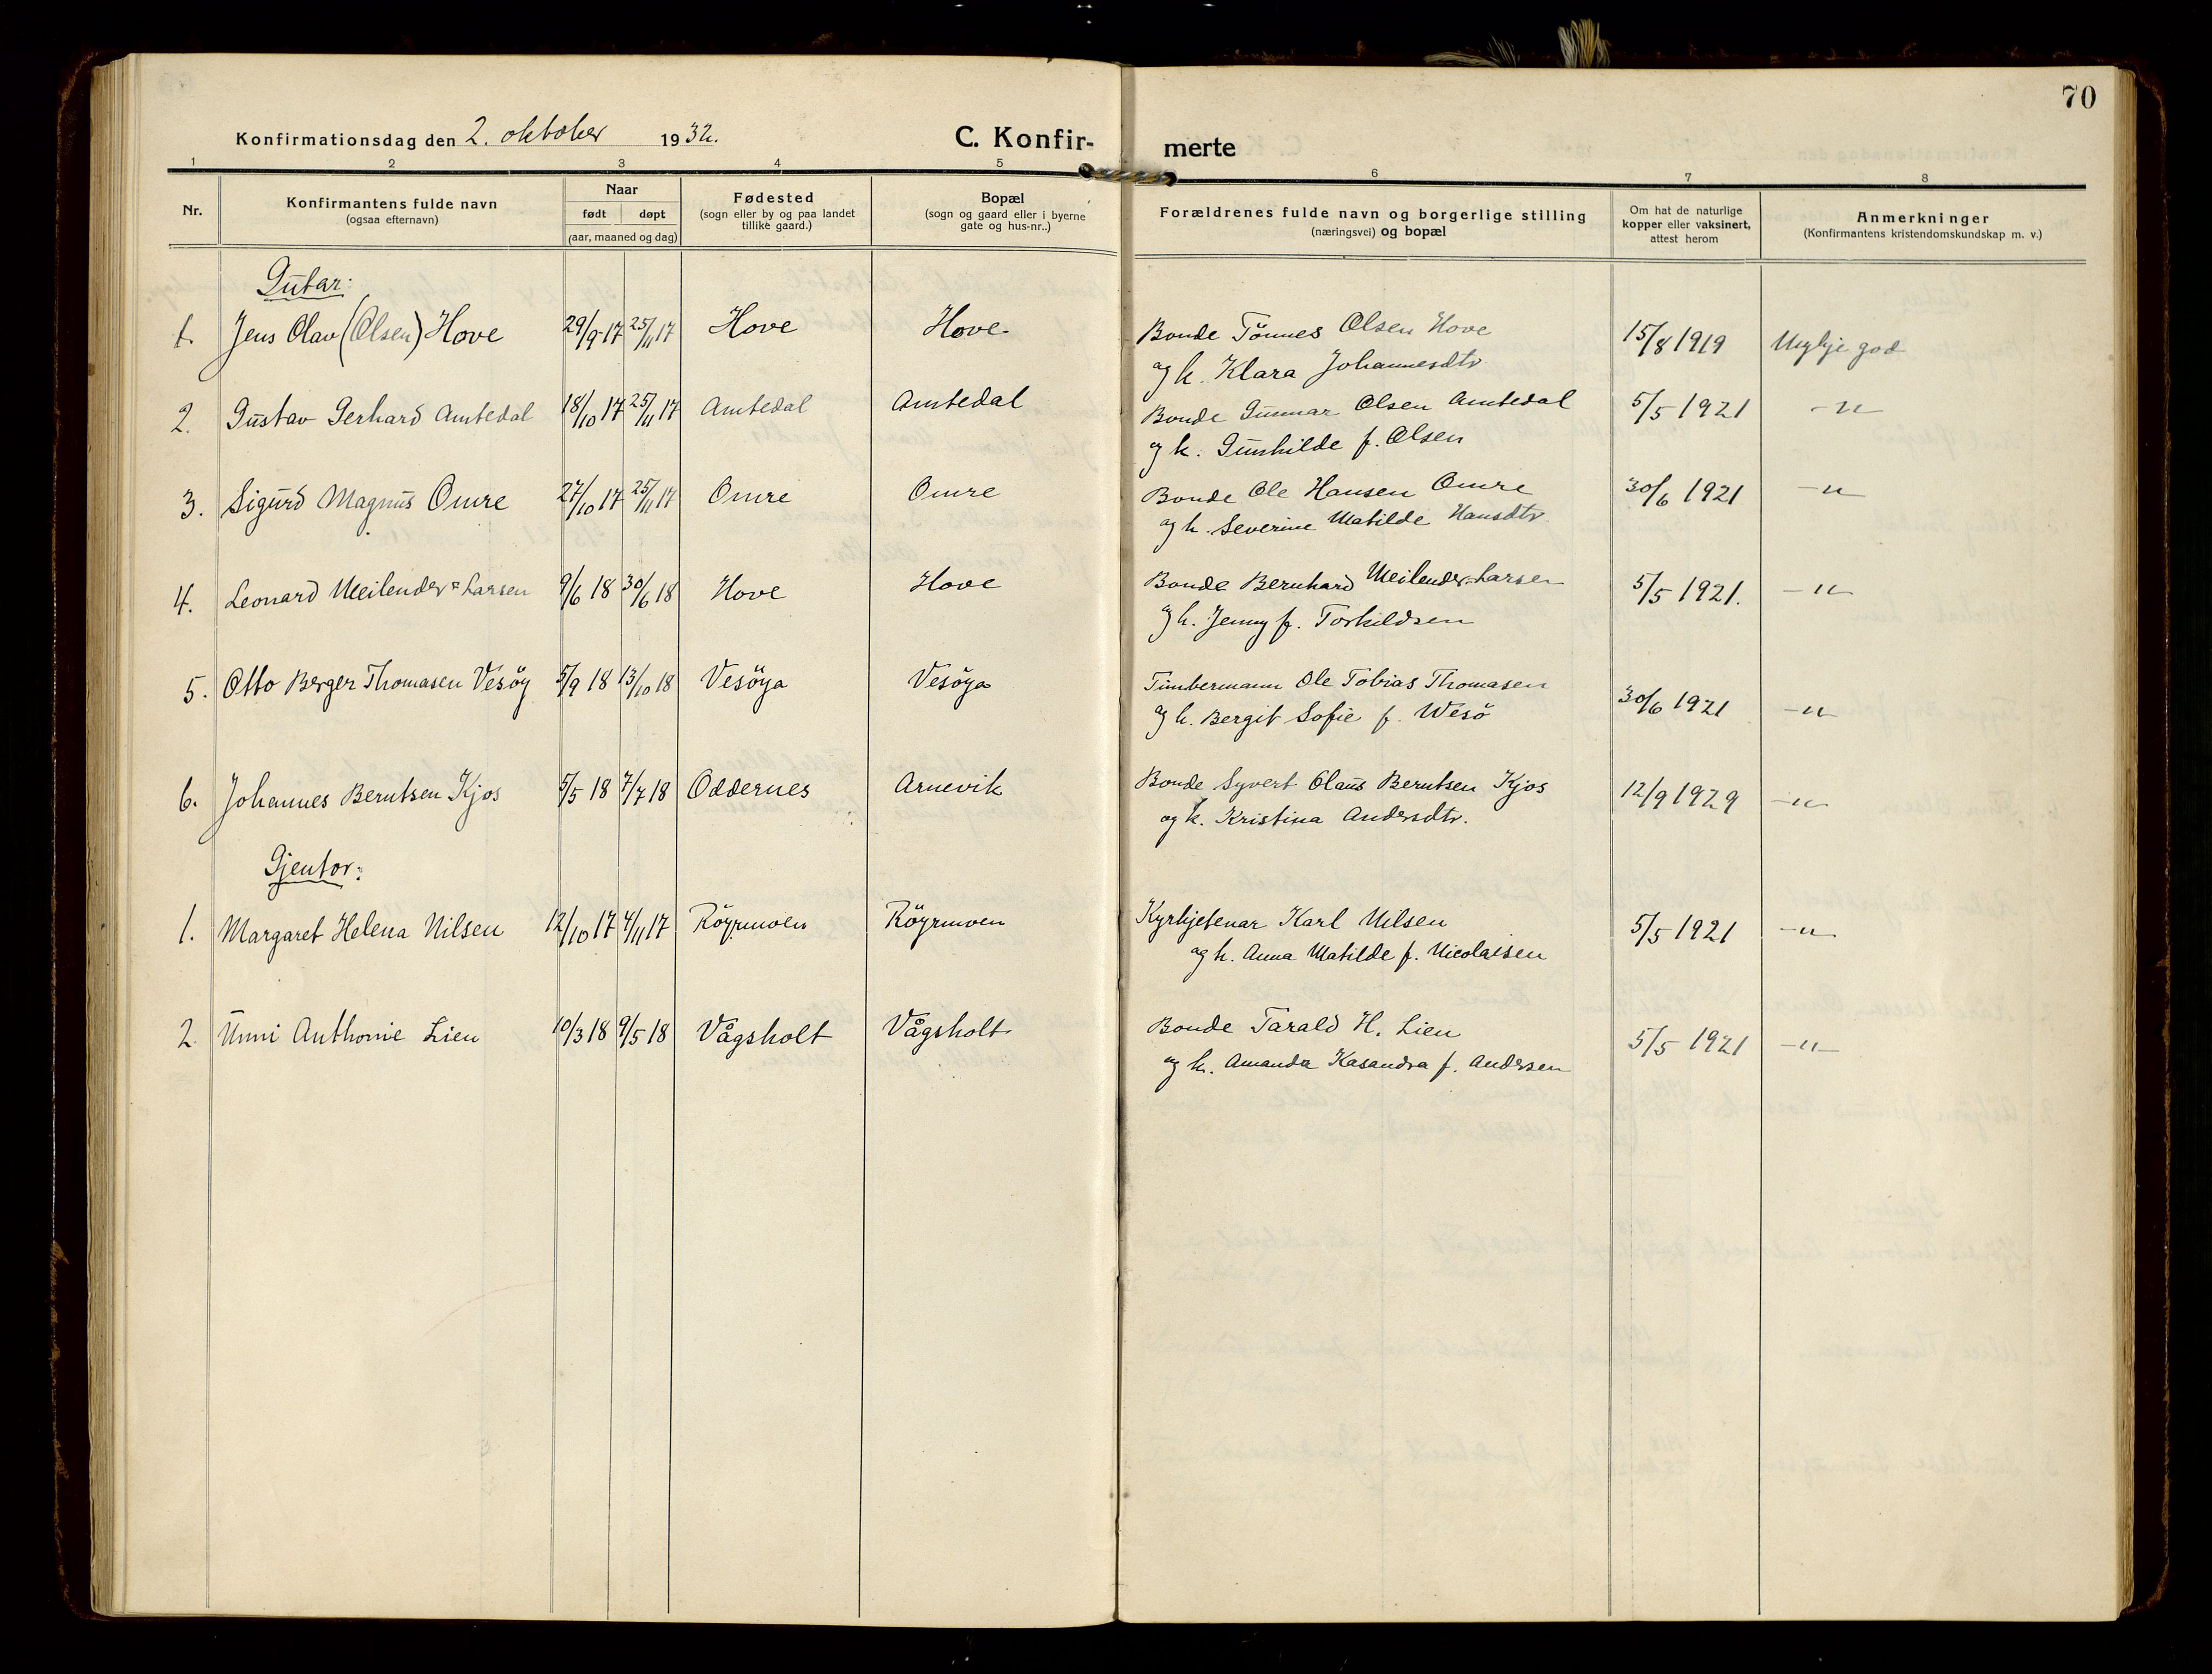 70
Konfirmationsdag den 2. oktober 1932.
C. Konfir-
merte
1 2 3 4 5 6 7 8
Nr.
Konfirmantens fulde navn
(ogsaa efternavn)
Naar
født døpt
(aar, maaned og dag)
Fødested
(sogn eller by og paa landet
tillike gaard.)
Bopæl
(sogn og gaard eller i byerne
gate og hus-nr..)
Forældrenes fulde navn og borgerlige stilling
(næringsvei) og bopæl
Om hat de naturlige
kopper eller vaksinert,
attest herom
Anmerkninger
(Konfirmantens kristendomskundskap m. v.)
Gutar:
1. Jens Olav (Olsen) Hove 29/9 17 25/11 17 Hove Hove. Bonde Tönnes Olsen Hove 15/8 1919 Mykje god
og k. Klara Johannesdtr
2. Gustav Gerhard Amtedal 18/10 17 25/11 17 Amtedal Amtedal Bonde Gunnar Olsen Amtedal 5/5 1921 -"-
og k. Gunhilde f. Olsen
3. Sigurd Magnus Omre 27/10 17 25/11 17 Omre Omre Bonde Ole Hansen Omre 30/6 1921 -"-
og k. Severine Matilde Hansdtr
4. Leonard Meilender=Larsen 9/6 18 30/6 18 Hove Hove Bonde Bernhard Meilender=Larsen 5/5 1921. -"-
og k. Jenny f. Torkildsen
5. Otto Berger Thomasen Vesöy 5/9 18 13/10 18 Vesöya Vesöya Timbermann Ole Tobias Thomasen 30/6 1921 -"-
og k. Bergit Sofie f. Wesö
6. Johannes Berntsen Kjos 5/5 18 7/7 18 Oddernes Arnevik Bonde Syvert Olaus Berntsen Kjos 12/9 1929 -"-
og k. Kristina Andersdtr.
Gjentor:
1. Margaret Helena Nilsen 12/10 17 4/11 17 Röyrmoen Röyrmoen Kyrkjetenar Karl Nilsen 5/5 1921 -"-
og k. Anna Matilde f. Nicolaisen
2. Unni Anthonie Lien 10/3 18 9/5 18 Vågsholt Vågsholt Bonde Tarald H. Lien 5/5 1921 -"-
og k. Amanda Kasandra f. Andersen